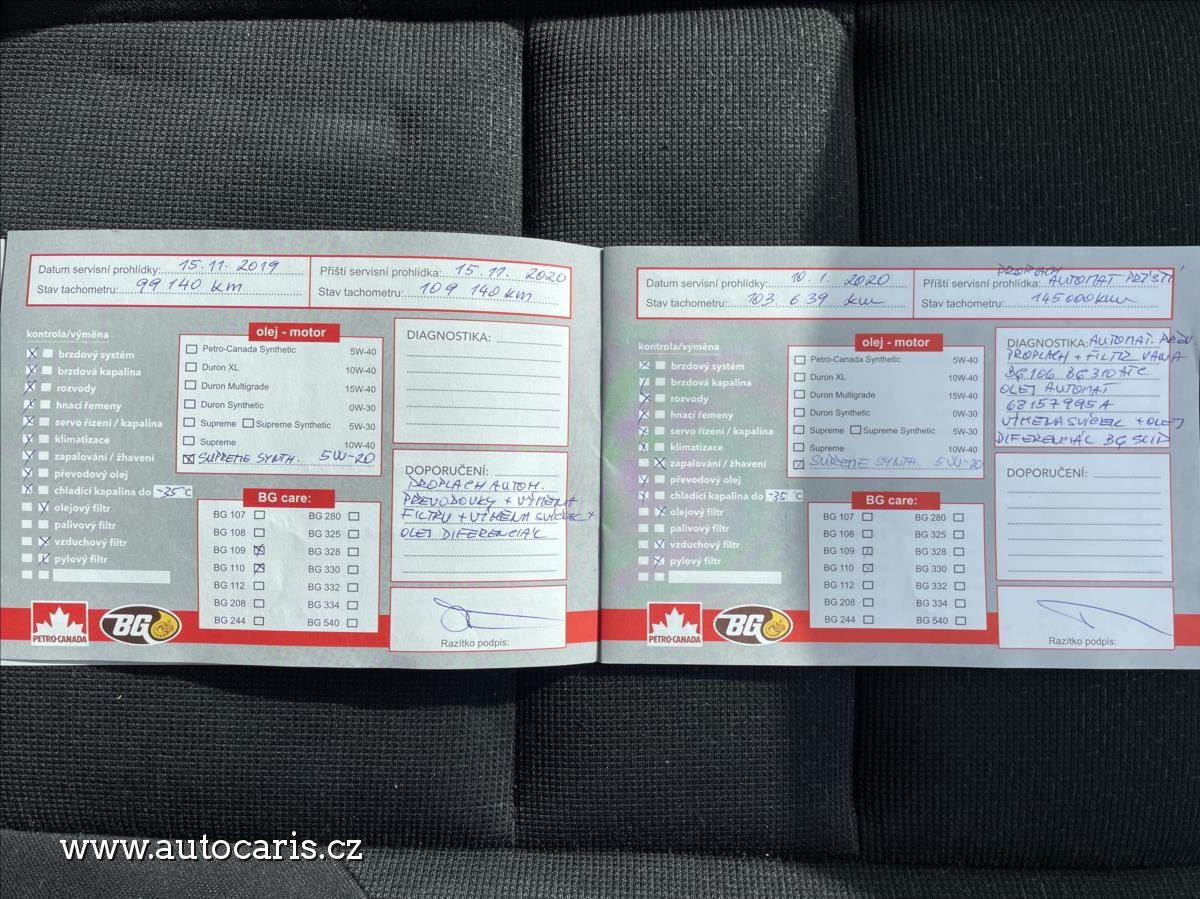 Datum servisní prohlídky: 15.11.2019
Stav tachometru: 99 140 km
Příští servisní prohlídka: 15.11. 2020
Stav tachometru: 109 140 km
kontrola/výměna
brzdový systém
brzdová kapalina
rozvody
hnací řemeny
servo řízení / kapalina
klimatizace
zapalování / žhavení
převodový olej
chladící kapalina do -35°C
olejový filtr
palivový filtr
vzduchový filtr
pylový filtr
olej - motor
Petro-Canada Synthetic 5W-40
Duron XL 10W-40
Duron Multigrade 15W-40
Duron Synthetic 0W-30
Supreme Supreme Synthetic 5W-30
Supreme 10W-40
SUPREME SYNTH. 5W-20
BG care:
BG 107 BG 280
BG 108 BG 325
BG 109 BG 328
BG 110 BG 330
BG 112 BG 332
BG 208 BG 334
BG 244 BG 540
DIAGNOSTIKA:
DOPORUČENÍ:
PROPLACH AUTOM.
PŘEVODOVKY + VÝMĚNA
FILTRU + VÝMĚNA SVÍČEK +
OLEJ DIFERENCIÁL
Razítko podpis:
PETRO-CANADA
BG
Datum servisní prohlídky: 10.1. 2020
Stav tachometru: 103 639 km
PROPLACH
Příští servisní prohlídka: AUTOMAT PŘÍŠTÍ
Stav tachometru: 145000km
kontrola/výměna
brzdový systém
brzdová kapalina
rozvody
hnací řemeny
servo řízení / kapalina
klimatizace
zapalování / žhavení
převodový olej
chladící kapalina do -35°C
olejový filtr
palivový filtr
vzduchový filtr
pylový filtr
olej - motor
Petro-Canada Synthetic 5W-40
Duron XL 10W-40
Duron Multigrade 15W-40
Duron Synthetic 0W-30
Supreme Supreme Synthetic 5W-30
Supreme 10W-40
SUPREME SYNTH. 5W-20
BG care:
BG 107 BG 280
BG 108 BG 325
BG 109 BG 328
BG 110 BG 330
BG 112 BG 332
BG 208 BG 334
BG 244 BG 540
DIAGNOSTIKA: AUTOMAT. PŘEV.
PROPLACH + FILTR VANA
BG 106 BG 310 ATC
OLEJ AUTOMAT
68157995A
VÝMĚNA SVÍČEK + OLEJ
DIFERENCIÁL BG SLID
DOPORUČENÍ:
Razítko podpis:
PETRO-CANADA
BG
www.autocaris.cz